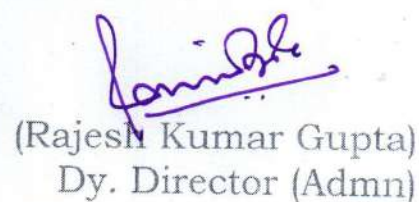 (Rajesh Kumar Gupta)
Dy. Director (Admn)